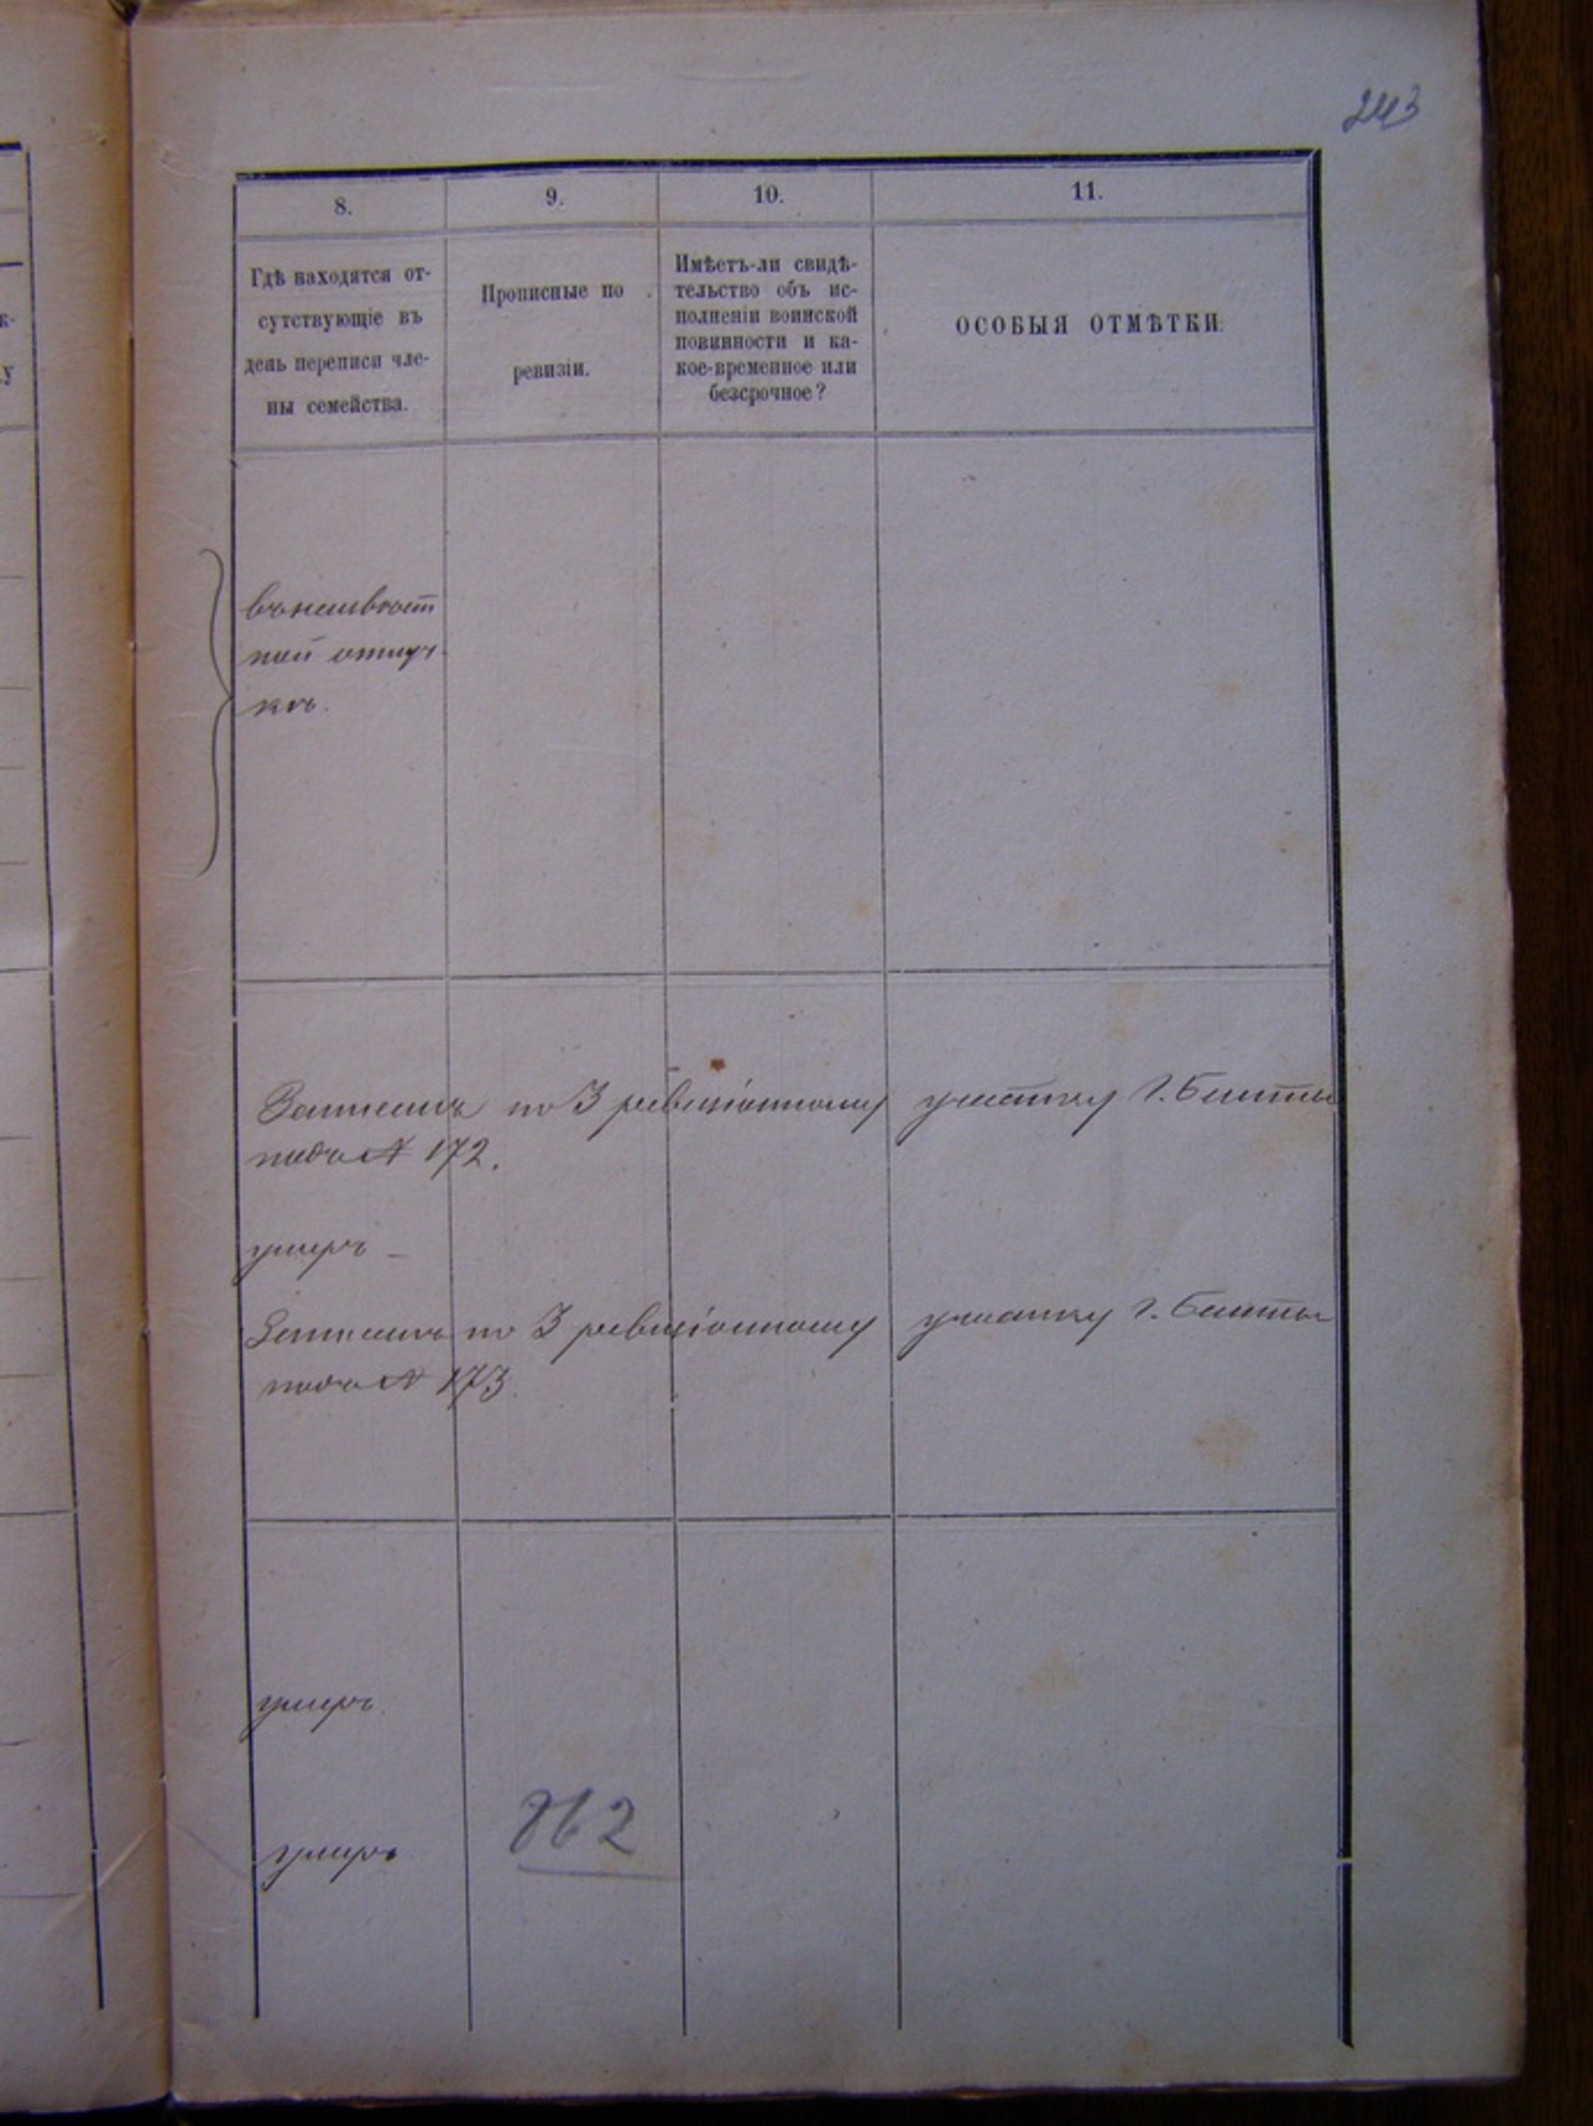 243
8.
9.
10.
11.
Гдѣ находятся от-
сутствующіе въ
день переписи чле-
ны семейства.
Прописные по
ревизіи.
Имѣетъ-ли свидѣ-
тельство объ ис-
полненіи воинской
повинности и ка-
кое-временное или
безсрочное?
ОСОБЫЯ ОТМѢТКИ.
въ неизвѣст
ной отлуч
кѣ.
Записанъ по 3 ревизіонному участку г.
подъ № 172.
умеръ –
Записанъ по 3 ревизіонному участку г.
подъ № 173.
умеръ.
862
умеръ